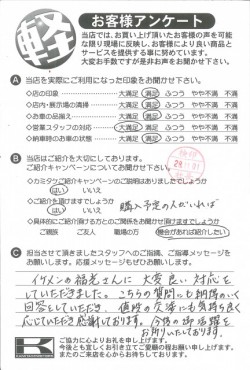 軽
お客様アンケート
当店では、お買い上げ頂いたお客様の声を可能
な限り現場に反映し、お客様により良い商品と
サービスを提供する事に努めています。
大変お手数ですが是非お声をお聞かせ下さい。
A 当店を実際にご利用になった印象をお聞かせ下さい。
◇店の印象 大満足 満足 ふつう やや不満 不満
◇店内・展示場の清掃 大満足 満足 ふつう やや不満 不満
◇お車の品揃え 大満足 満足 ふつう やや不満 不満
◇営業スタッフの対応 大満足 満足 ふつう やや不満 不満
◇納車時のお車の状態 大満足 満足 ふつう やや不満 不満
B 当店はご紹介を大切にしております。
ご紹介キャンペーンについてお聞かせ下さい。
◇カミタケご紹介キャンペーンのご説明はありましたでしょうか
はい いいえ
◇ご紹介を頂けますでしょうか
はい いいえ 購入予定の人がいれば
◇具体的にご紹介頂ける方とのご関係をお聞かせ頂けますでしょうか
ご親族 ご友人 職場の方 機会があれば紹介したい
C 担当させて頂きましたスタッフへのご指摘、ご指導メッセージを
お願いします。応援メッセージもぜひお願いします。
イケメンの福光さんに大変良い対応を
していただきました。こちらの質問にも納得のいく
回答をしていただき、値段の交渉にも気持ち良く
応じていただき感謝しております。今後の御活躍を
お祈りいたしております。
K
ご協力に心よりお礼を申し上げます。
今後とも宜しくお引き立てご愛顧の程お願い申し上げます。
またのご来店を心からお待ちしております。